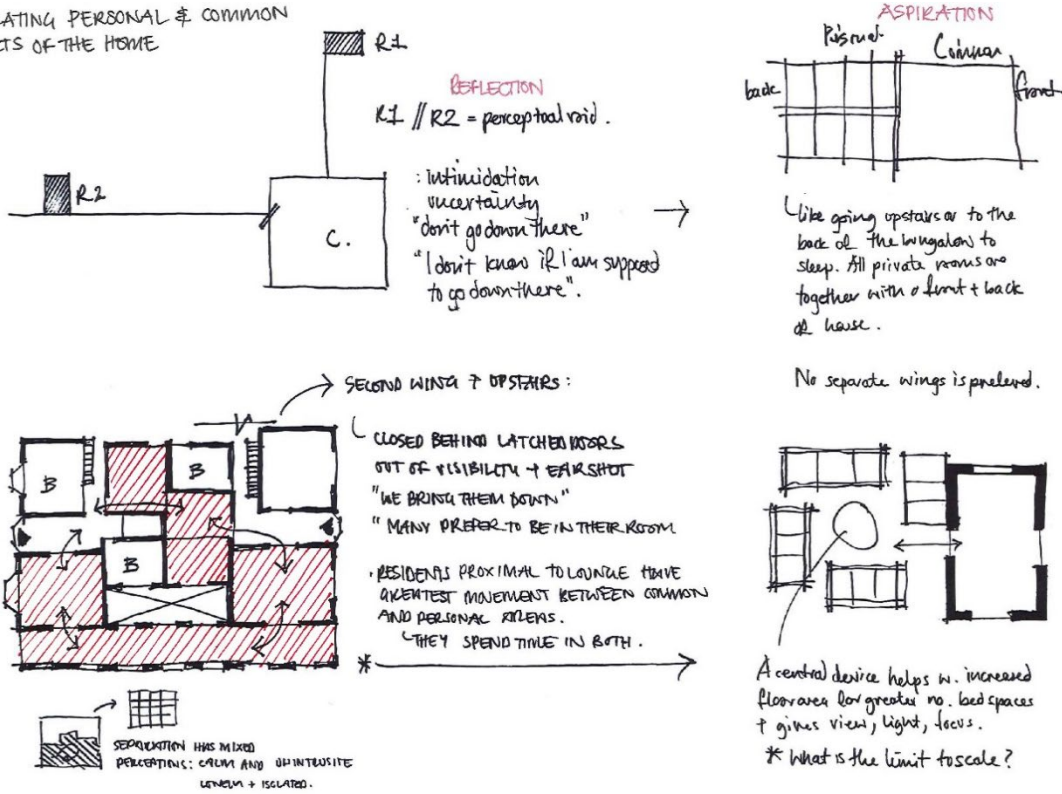 ATING PERSONAL & COMMON
TS OF THE HOME
R1
R2
C.
REFLECTION
R1 // R2 = perceptual void.
: Intimidation
uncertainty
"don't go down there"
"I don't know if I am supposed
to go down there".
ASPIRATION
Personal Common
back front
like going upstairs or to the
back of the bungalow to
sleep. All private rooms are
together with a front + back
of house.
No separate wings is preferred.
SECOND WING + UPSTAIRS:
CLOSED BEHIND LATCHED DOORS
OUT OF VISIBILITY + EARSHOT
"WE BRING THEM DOWN"
"MANY PREFER TO BE IN THEIR ROOM
B
B
B
RESIDENTS PROXIMAL TO LOUNGE HAVE
GREATEST MOVEMENT BETWEEN COMMON
AND PERSONAL AREAS.
THEY SPEND TIME IN BOTH.
*
SEPARATION HAS MIXED
PERCEPTIONS: CALM AND UNINTRUSITE
LONELY + ISOLATED.
A central device helps w. increased
floor area for greater no. bed spaces
+ gives view, light, focus.
* What is the limit to scale?